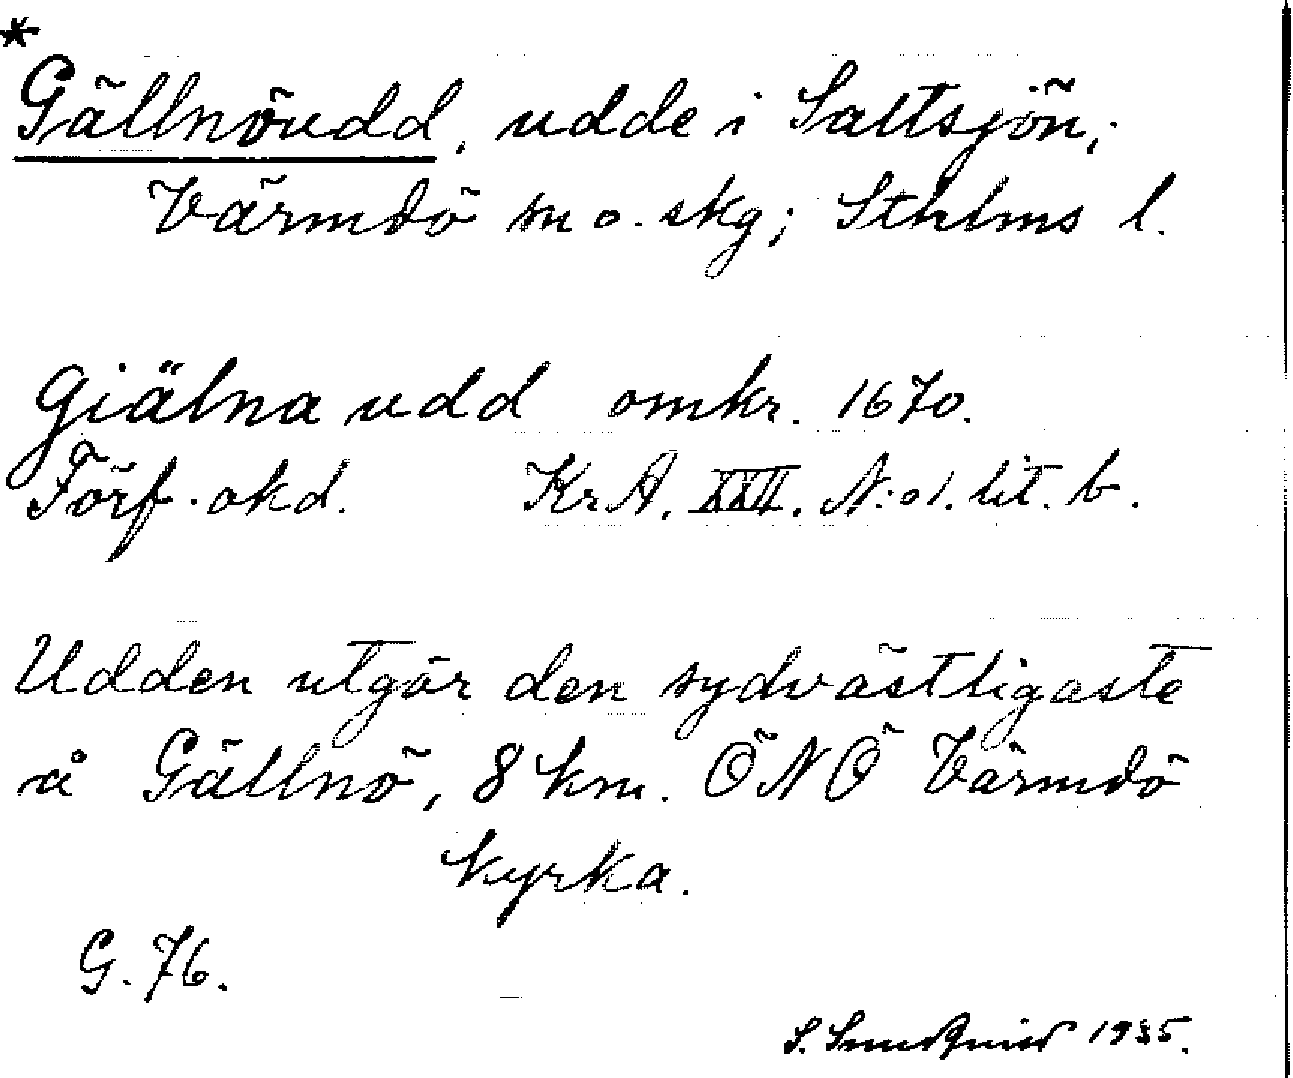 *
Gällnöudd, udde i Saltsjön,
Värmdö sn o. skg; Sthlms l.
Giälna udd omkr. 1670.
Förf. okd. Kr.A. XXII. N:o 1. lit. b.
Udden utgör den sydvästligaste
å Gällnö, 8 km. ÖNÖ Värmdö
kyrka.
G. 76.
S. 1935.